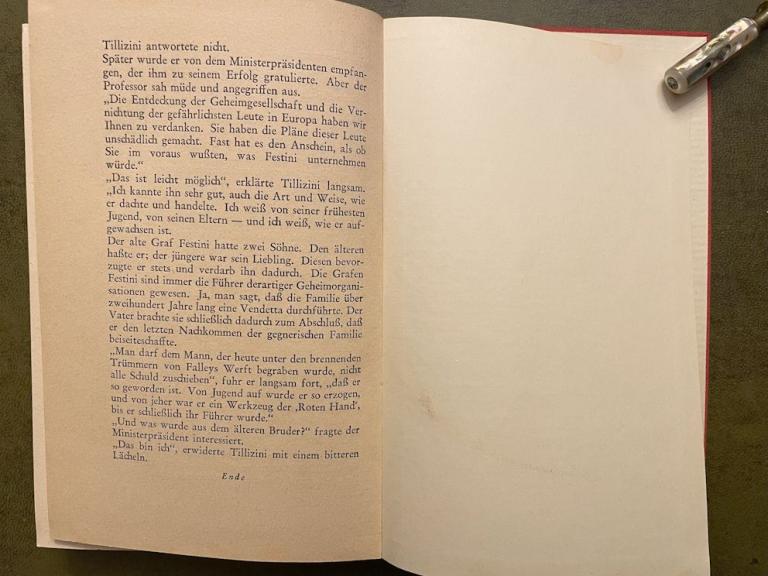 Tillizini antwortete nicht.
Später wurde er von dem Ministerpräsidenten empfan-
gen, der ihm zu seinem Erfolg gratulierte. Aber der
Professor sah müde und angegriffen aus.
„Die Entdeckung der Geheimgesellschaft und die Ver-
nichtung der gefährlichsten Leute in Europa haben wir
Ihnen zu verdanken. Sie haben die Pläne dieser Leute
unschädlich gemacht. Fast hat es den Anschein, als ob
Sie im voraus wußten, was Festini unternehmen
würde.“
„Das ist leicht möglich“, erklärte Tillizini langsam.
„Ich kannte ihn sehr gut, auch die Art und Weise, wie
er dachte und handelte. Ich weiß von seiner frühesten
Jugend, von seinen Eltern — und ich weiß, wie er auf-
gewachsen ist.
Der alte Graf Festini hatte zwei Söhne. Den älteren
haßte er; der jüngere war sein Liebling. Diesen bevor-
zugte er stets und verdarb ihn dadurch. Die Grafen
Festini sind immer die Führer derartiger Geheimorgani-
sationen gewesen. Ja, man sagt, daß die Familie über
zweihundert Jahre lang eine Vendetta durchführte. Der
Vater brachte sie schließlich dadurch zum Abschluß, daß
er den letzten Nachkommen der gegnerischen Familie
beiseiteschaffte.
„Man darf dem Mann, der heute unter den brennenden
Trümmern von Falleys Werft begraben wurde, nicht
alle Schuld zuschieben“, fuhr er langsam fort, „daß er
so geworden ist. Von Jugend auf wurde er so erzogen,
und von jeher war er ein Werkzeug der ‚Roten Hand‘,
bis er schließlich ihr Führer wurde.“
„Und was wurde aus dem älteren Bruder?“ fragte der
Ministerpräsident interessiert.
„Das bin ich“, erwiderte Tillizini mit einem bitteren
Lächeln.
Ende